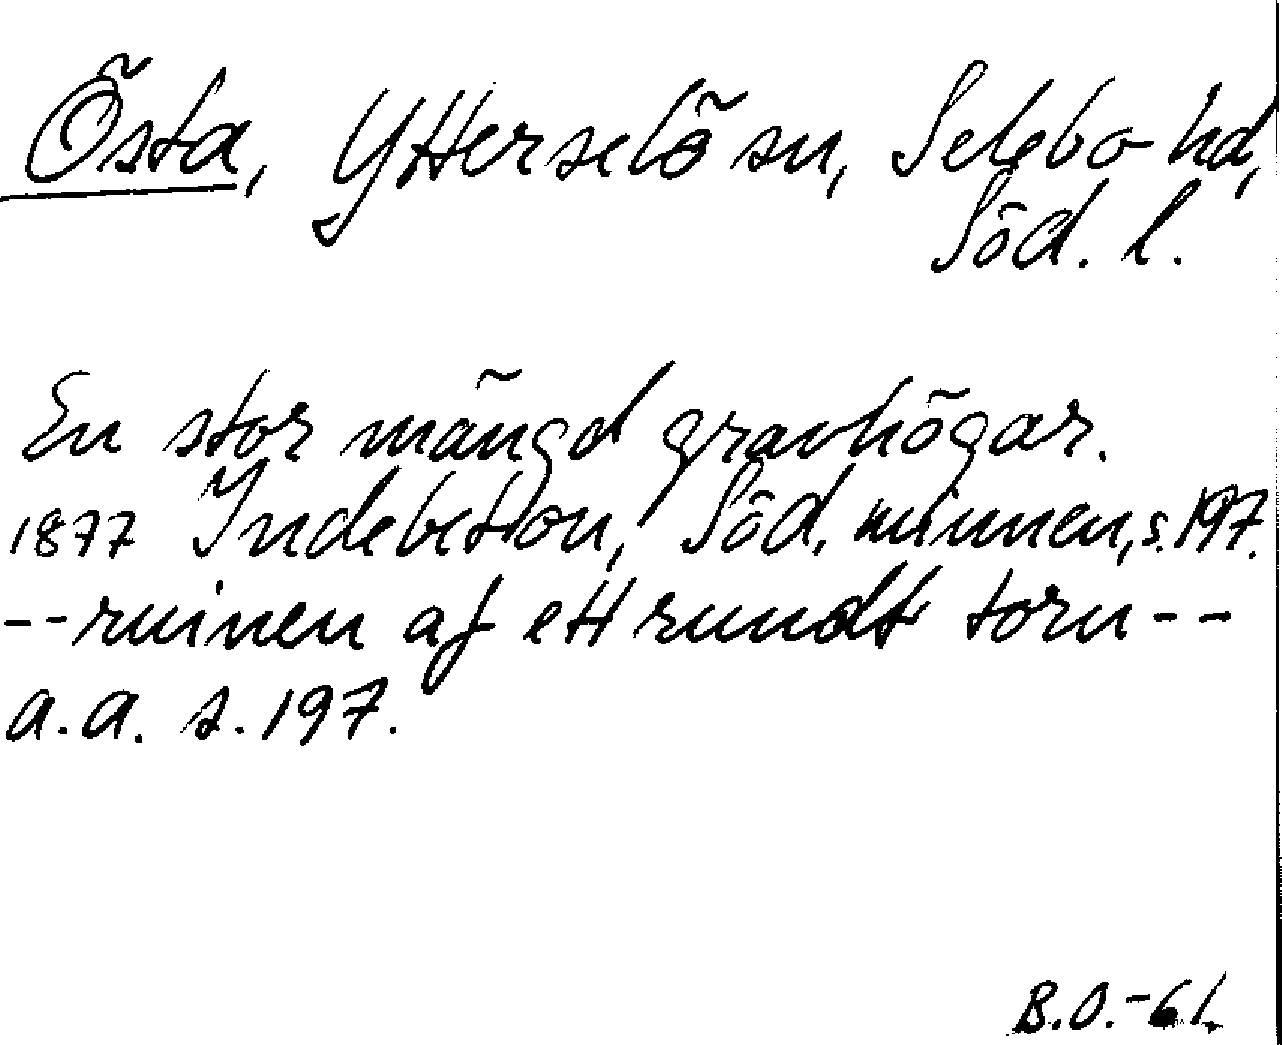 Östa, Ytterselö sn, Selebo hd,
Söd. l.
En stor mängd gravhögar.
1877 Indebetou, Söd. minnen, s. 197.
-- ruinen af ett rundt torn --
a. a. s. 197.
B.O.-61.